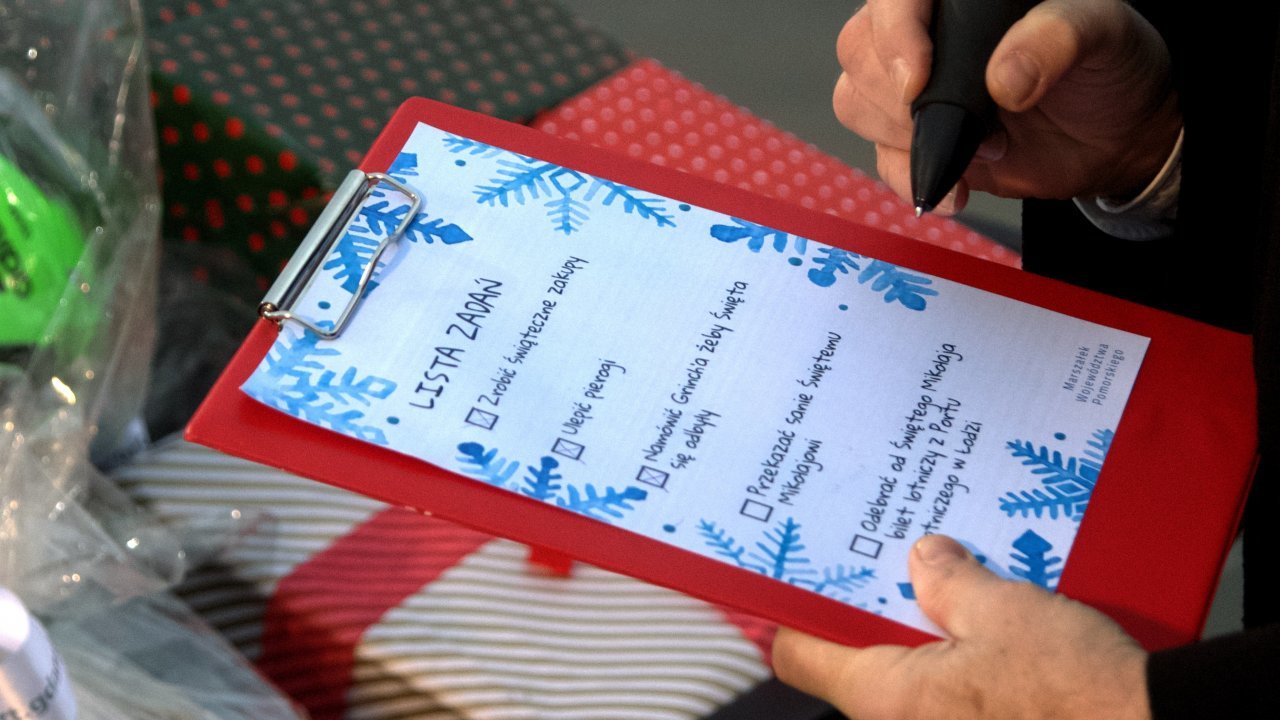 LISTA ZADAŃ
Zrobić świąteczne zakupy
Ulepić pierogi
Namówić Grincha żeby święta
się odbyły
Przekazać sanie Świętemu
Mikołajowi
Odebrać od Świętego Mikołaja
bilet lotniczy z Portu
otniczego w Łodzi
Marszałek
Województwa
Pomorskiego